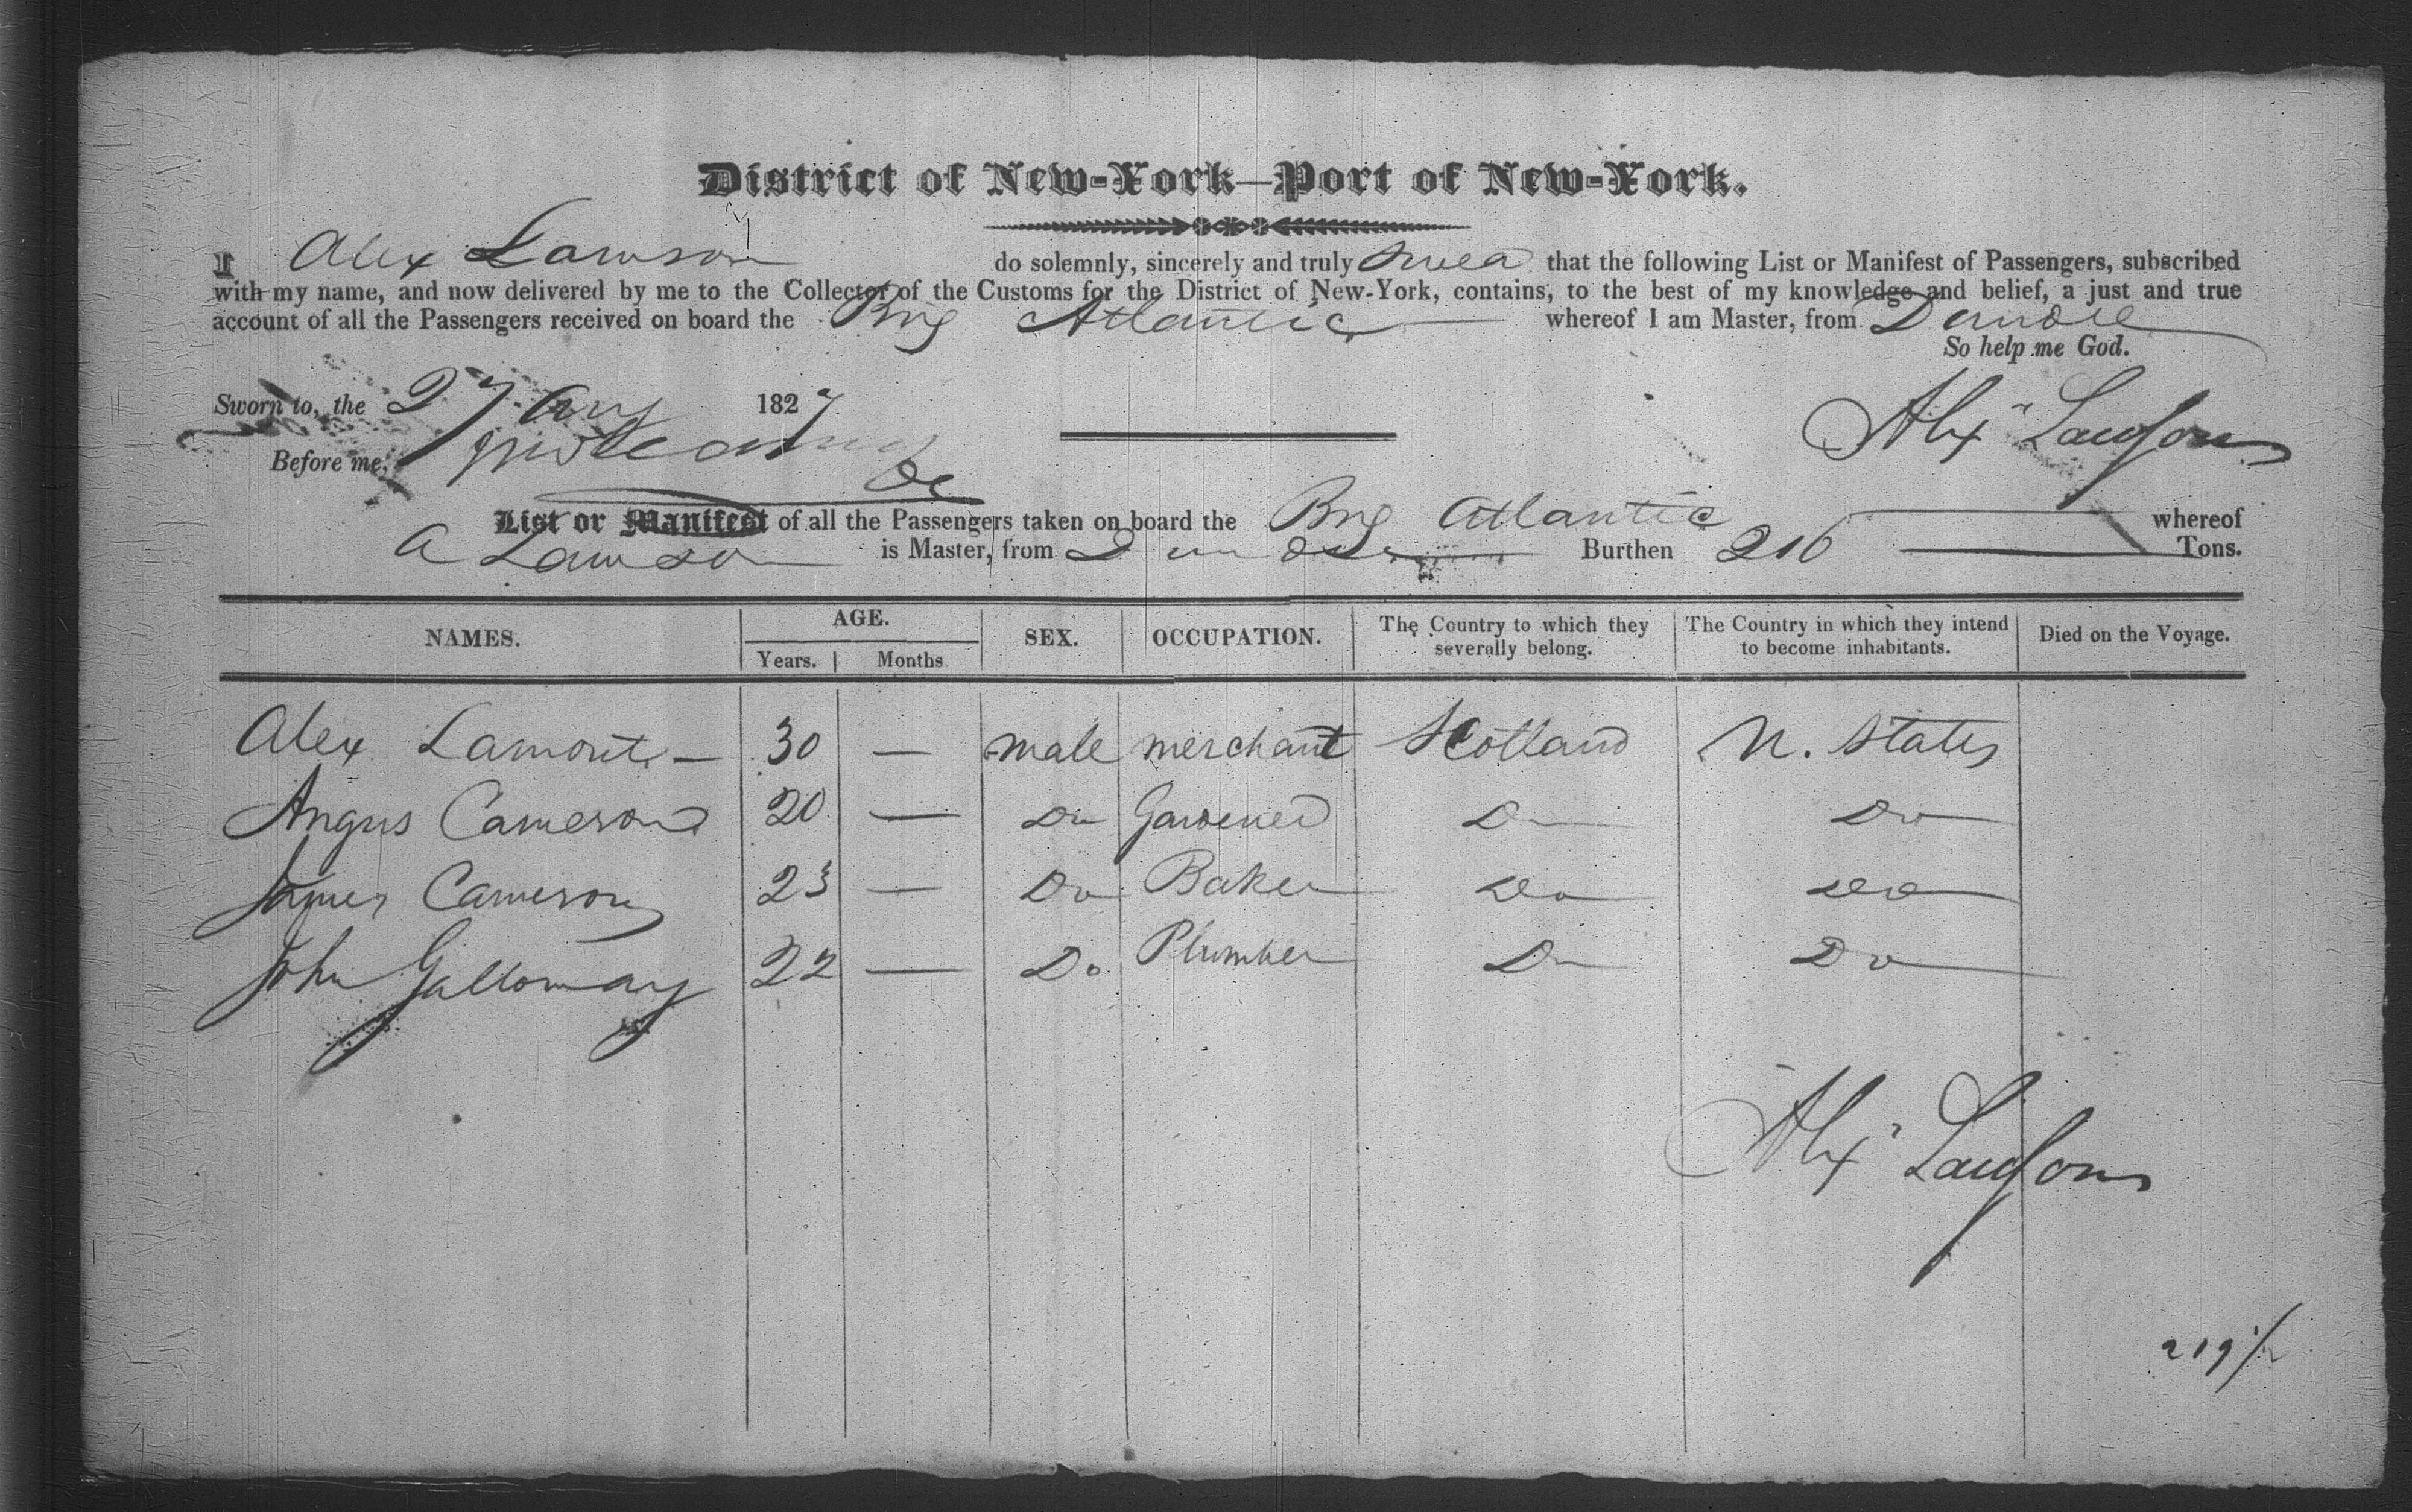 District of New-York—Port of New-York.
I Alex Lawson do solemnly, sincerely and truly swear that the following List or Manifest of Passengers, subscribed
with my name, and now delivered by me to the Collector of the Customs for the District of New-York, contains, to the best of my knowledge and belief, a just and true
account of all the Passengers received on board the Brig Atlantic whereof I am Master, from Dundee
So help me God.
Sworn to, the 27 Aug 1827
Alexr Lawson
Before me,
List or Manifest of all the Passengers taken on board the Brig Atlantic whereof
A Lawson is Master, from Dundee Burthen 216 Tons.
NAMES. AGE. Years. Months SEX. OCCUPATION. The Country to which they severally belong. The Country in which they intend to become inhabitants. Died on the Voyage.
Alex Lamont — 30 — male merchant Scotland U. States
Angus Cameron 20 — Do Gardener Do Do
James Cameron 23 — Do Baker Do Do
John Galloway 22 — Do Plumber Do Do
Alexr Lawson
219/